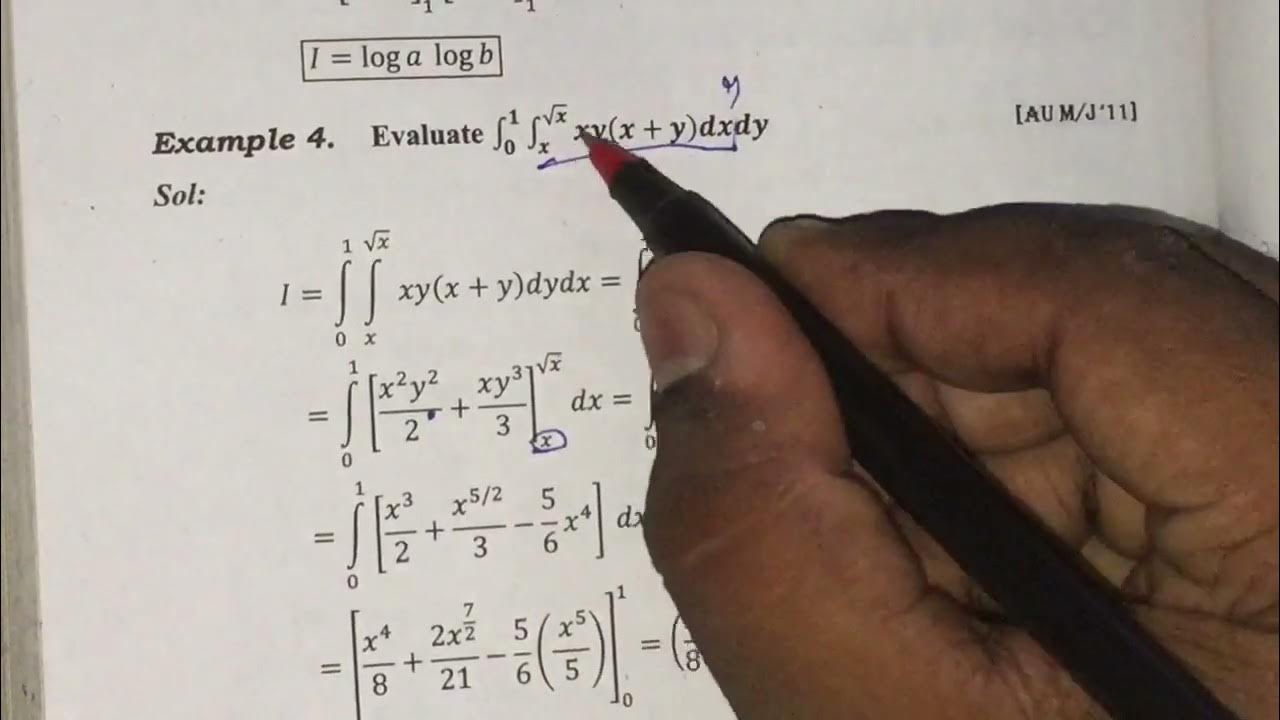 I = log a log b
y
Example 4. Evaluate ∫₀¹ ∫ₓ^√x xy(x + y)dxdy [AU M/J'11]
Sol:
I = ∫₀¹ ∫ₓ^√x xy(x + y)dydx =
= ∫₀¹ [x²y²/2 + xy³/3]ₓ^√x dx =
= ∫₀¹ [x³/2 + x^(5/2)/3 − 5/6 x⁴] dx
= [x⁴/8 + 2x^(7/2)/21 − 5/6 (x⁵/5)]₀¹ = (